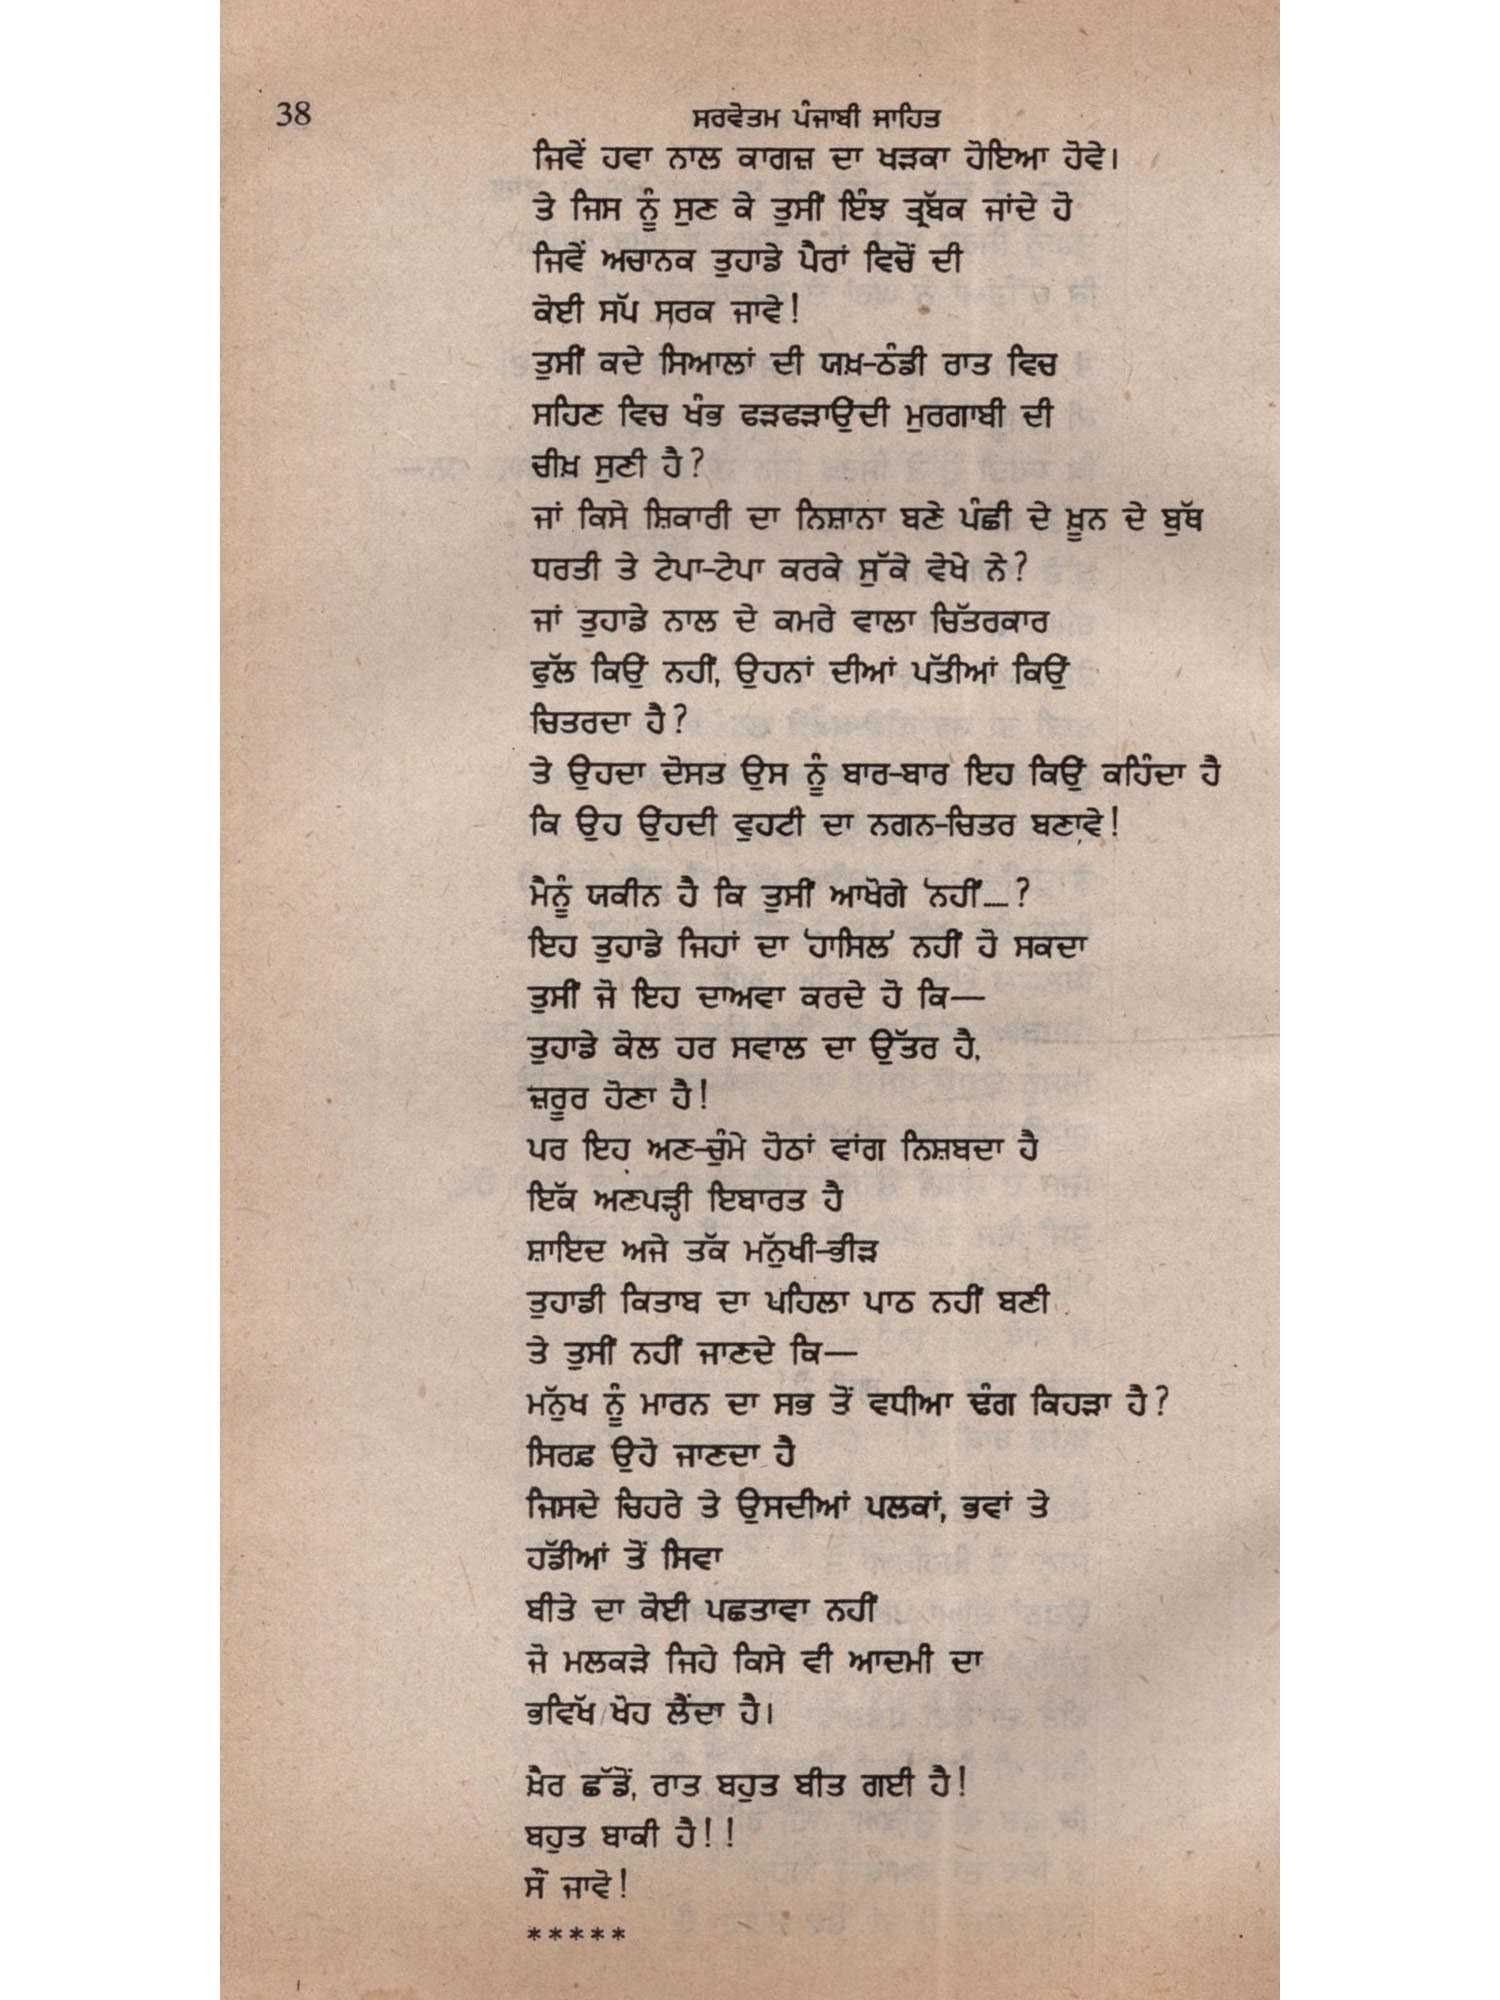 38
ਸਰਵੋਤਮ ਪੰਜਾਬੀ ਸਾਹਿਤ
ਜਿਵੇਂ ਹਵਾ ਨਾਲ ਕਾਗਜ਼ ਦਾ ਖੜਕਾ ਹੋਇਆ ਹੋਵੇ।
ਤੇ ਜਿਸ ਨੂੰ ਸੁਣ ਕੇ ਤੁਸੀਂ ਇੰਝ ਤ੍ਰਬੱਕ ਜਾਂਦੇ ਹੋ
ਜਿਵੇਂ ਅਚਾਨਕ ਤੁਹਾਡੇ ਪੈਰਾਂ ਵਿਚੋਂ ਦੀ
ਕੋਈ ਸੱਪ ਸਰਕ ਜਾਵੇ!
ਤੁਸੀਂ ਕਦੇ ਸਿਆਲਾਂ ਦੀ ਯਖ਼-ਠੰਡੀ ਰਾਤ ਵਿਚ
ਸਹਿਣ ਵਿਚ ਖੰਭ ਫੜਫੜਾਉਂਦੀ ਮੁਰਗਾਬੀ ਦੀ
ਚੀਖ਼ ਸੁਣੀ ਹੈ?
ਜਾਂ ਕਿਸੇ ਸ਼ਿਕਾਰੀ ਦਾ ਨਿਸ਼ਾਨਾ ਬਣੇ ਪੰਛੀ ਦੇ ਖ਼ੂਨ ਦੇ ਬੁੱਥ
ਧਰਤੀ ਤੇ ਟੇਪਾ-ਟੇਪਾ ਕਰਕੇ ਸੁੱਕੇ ਵੇਖੇ ਨੇ?
ਜਾਂ ਤੁਹਾਡੇ ਨਾਲ ਦੇ ਕਮਰੇ ਵਾਲਾ ਚਿੱਤਰਕਾਰ
ਫੁੱਲ ਕਿਉਂ ਨਹੀਂ, ਉਹਨਾਂ ਦੀਆਂ ਪੱਤੀਆਂ ਕਿਉਂ
ਚਿਤਰਦਾ ਹੈ?
ਤੇ ਉਹਦਾ ਦੋਸਤ ਉਸ ਨੂੰ ਬਾਰ-ਬਾਰ ਇਹ ਕਿਉਂ ਕਹਿੰਦਾ ਹੈ
ਕਿ ਉਹ ਉਂਹਦੀ ਵੁਹਟੀ ਦਾ ਨਗਨ-ਚਿਤਰ ਬਣਾਵੇ!
ਮੈਨੂੰ ਯਕੀਨ ਹੈ ਕਿ ਤੁਸੀਂ ਆਖੋਗੇ 'ਨਹੀਂ....?
ਇਹ ਤੁਹਾਡੇ ਜਿਹਾਂ ਦਾ 'ਹਾਸਿਲ' ਨਹੀਂ ਹੋ ਸਕਦਾ
ਤੁਸੀਂ ਜੋ ਇਹ ਦਾਅਵਾ ਕਰਦੇ ਹੋ ਕਿ—
ਤੁਹਾਡੇ ਕੋਲ ਹਰ ਸਵਾਲ ਦਾ ਉੱਤਰ ਹੈ,
ਜ਼ਰੂਰ ਹੋਣਾ ਹੈ!
ਪਰ ਇਹ ਅਣ-ਚੁੰਮੇ ਹੋਠਾਂ ਵਾਂਗ ਨਿਸ਼ਬਦਾ ਹੈ
ਇੱਕ ਅਣਪੜ੍ਹੀ ਇਬਾਰਤ ਹੈ
ਸ਼ਾਇਦ ਅਜੇ ਤੱਕ ਮਨੁੱਖੀ-ਭੀੜ
ਤੁਹਾਡੀ ਕਿਤਾਬ ਦਾ ਪਹਿਲਾ ਪਾਠ ਨਹੀਂ ਬਣੀ
ਤੇ ਤੁਸੀਂ ਨਹੀਂ ਜਾਣਦੇ ਕਿ—
ਮਨੁੱਖ ਨੂੰ ਮਾਰਨ ਦਾ ਸਭ ਤੋਂ ਵਧੀਆ ਢੰਗ ਕਿਹੜਾ ਹੈ?
ਸਿਰਫ਼ ਉਹੋ ਜਾਣਦਾ ਹੈ
ਜਿਸਦੇ ਚਿਹਰੇ ਤੇ ਉਸਦੀਆਂ ਪਲਕਾਂ, ਭਵਾਂ ਤੇ
ਹੱਡੀਆਂ ਤੋਂ ਸਿਵਾ
ਬੀਤੇ ਦਾ ਕੋਈ ਪਛਤਾਵਾ ਨਹੀਂ
ਜੋ ਮਲਕੜੇ ਜਿਹੇ ਕਿਸੇ ਵੀ ਆਦਮੀ ਦਾ
ਭਵਿੱਖ ਖੋਹ ਲੈਂਦਾ ਹੈ।
ਖ਼ੈਰ ਛੱਡੋਂ, ਰਾਤ ਬਹੁਤ ਬੀਤ ਗਈ ਹੈ!
ਬਹੁਤ ਬਾਕੀ ਹੈ!!
ਸੌਂ ਜਾਵੋ!
*****